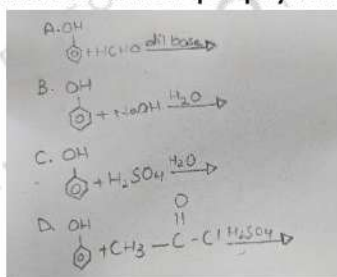 A. OH
+HCHO dil base
B. OH
+ NaOH H₂O
C. OH
+ H₂SO₄ H₂O
O
D. OH
+CH₃ — C - Cl H₂SO₄